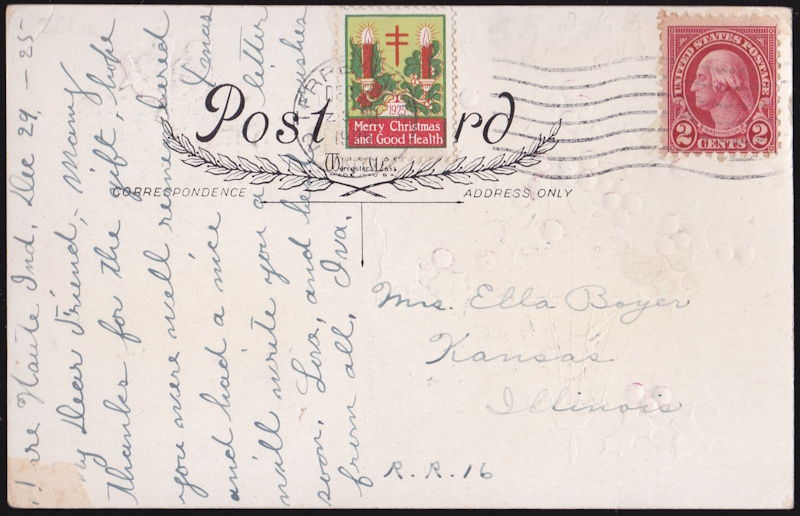 Post Card
CORRESPONDENCE
ADDRESS ONLY
Merry Christmas
and Good Health
1925
UNITED STATES POSTAGE
2 2
CENTS
Haute Ind. Dec 29 - 25
Dear Friend, - Many
thanks for the gift, hope
you were well remembered
and had a nice Xmas
will write you a letter
soon. Love, and best wishes
from all. Iva.
Mrs. Ella Boyer
Kansas
Illinois
R.R. 16